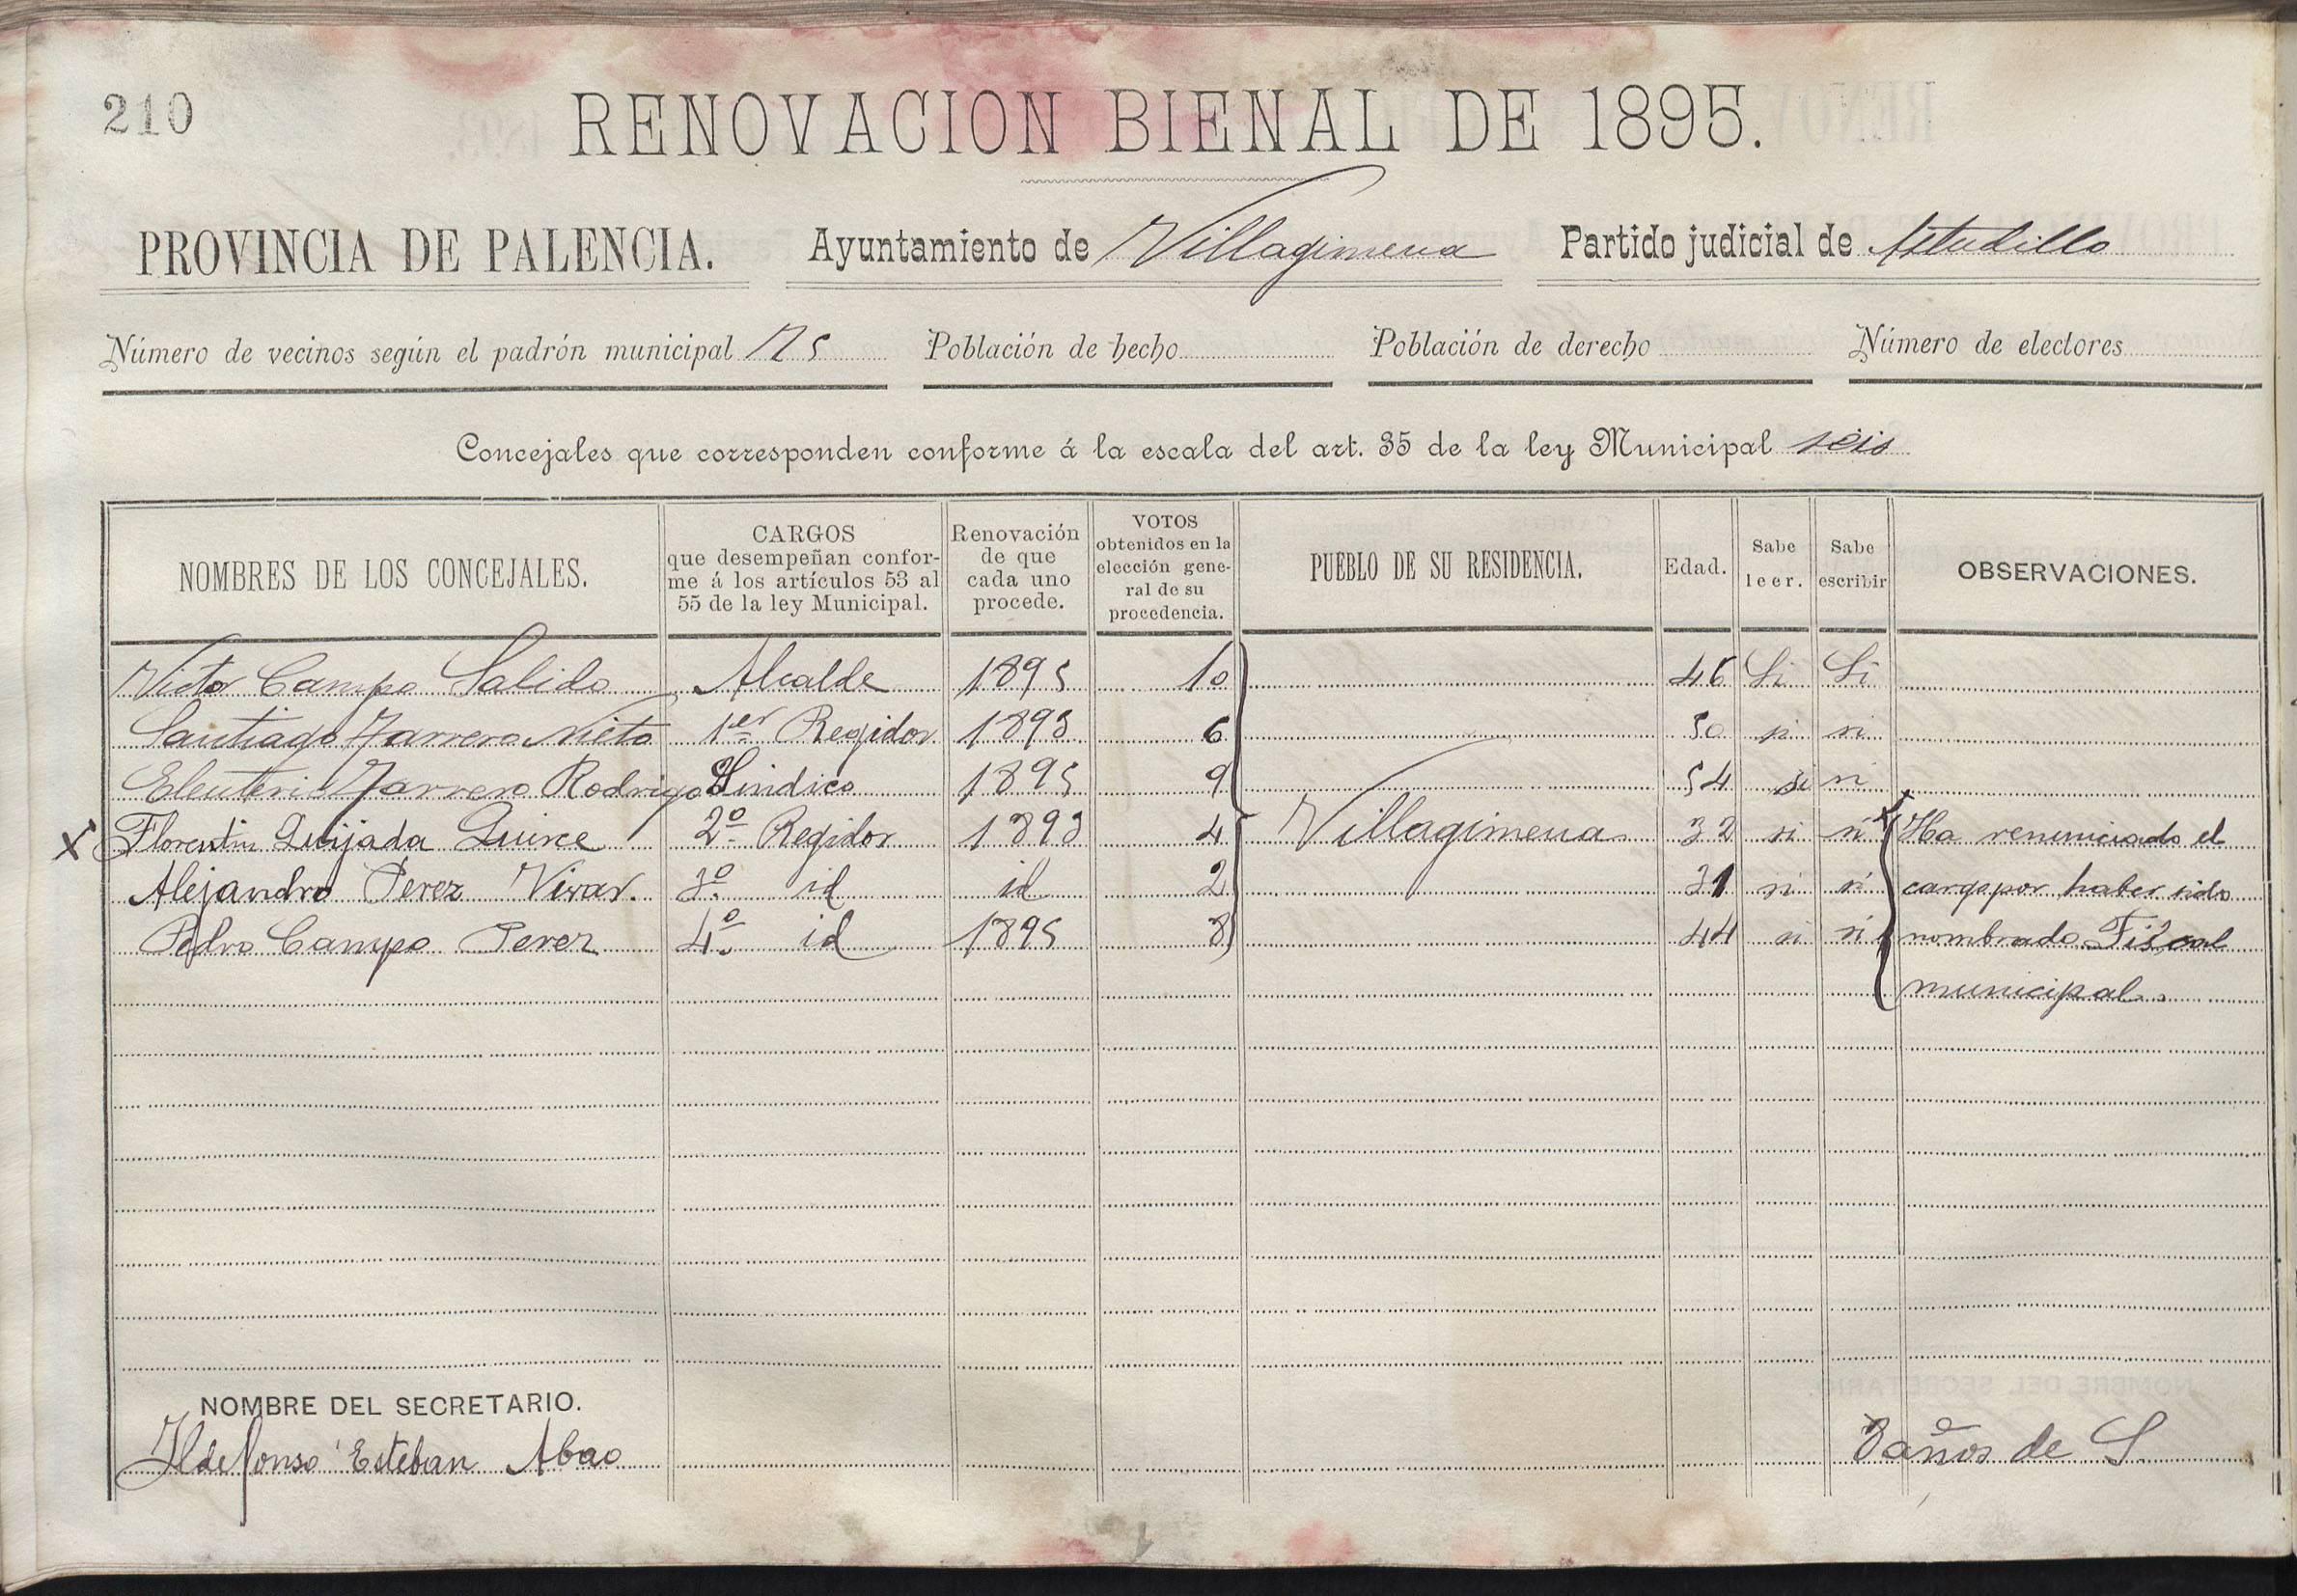 210
RENOVACION BIENAL DE 1895.
PROVINCIA DE PALENCIA. Ayuntamiento de Villagimena Partido judicial de Astudillo
Número de vecinos según el padrón municipal 75 Población de hecho Población de derecho Número de electores
Concejales que corresponden conforme á la escala del art. 35 de la ley Municipal seis
NOMBRES DE LOS CONCEJALES.
CARGOS
que desempeñan confor-
me á los artículos 53 al
55 de la ley Municipal.
Renovación
de que
cada uno
procede.
VOTOS
obtenidos en la
elección gene-
ral de su
procedencia.
PUEBLO DE SU RESIDENCIA.
Edad.
Sabe
leer.
Sabe
escribir
OBSERVACIONES.
Victor Campo Salido Alcalde 1895 10 46 Si Si
Santiago Zarrero Nieto 1er Regidor 1893 6 50 si si
Eleuterio Zarrero Rodrigo Sindico 1895 9 54 si si
X Florentin Quijada Quirce 2º Regidor 1893 4 Villagimena 32 si si X Ha renunciado el
Alejandro Perez Vivar. 3º id id 2 31 si si cargo por haber sido
Pedro Campo Perez 4º id 1895 8 44 si si nombrado Fiscal
municipal.
NOMBRE DEL SECRETARIO.
Ildefonso Esteban Abao
3 años de S.